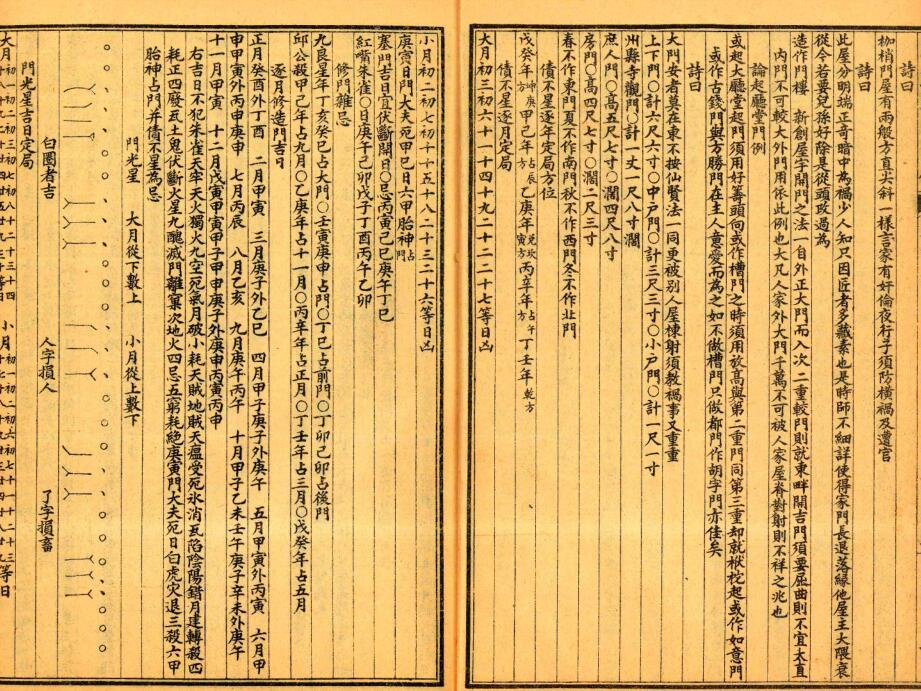 枷梢門屋有兩般方直尖斜一樣言家有奸倫夜行子須防橫禍及遭官
詩曰
此屋分明端正奇暗中為禍少人知只因匠者多藏素也是時師不細詳使得家門長退落緣他屋主大隈衰
從今若要兒孫好除是從頭改過為
造作門樓　新創屋宇開門之法一自外正大門而入次二重較門則就東畔開吉門須要屈曲則不宜大直
內門不可較大外門用依此例也大凡人家外大門千萬不可被人家屋脊對射則不祥之兆也
論起廳堂門例
或起大廳堂起門須用好籌頭向或作槽門之時須用放高與第二重門同第三重却就栿柁起或作如意門
或作古錢門與方勝門在主人意愛而為之如不做槽門只做都門作胡字門亦佳矣
詩曰
大門安者莫在東不按仙賢法一同更被別人屋棟射須教禍事又重重
上下門〇計六尺六寸〇中戶門〇計三尺三寸〇小戶門〇計一尺一寸
州縣寺觀門〇計一丈一尺八寸濶
庶人門〇高五尺七寸〇濶四尺八寸
房門〇高四尺七寸〇濶二尺三寸
春不作東門夏不作南門秋不作西門冬不作北門
債不星逐年定局方位
戊癸年坤庚方　甲己年占辰方　乙庚年兌坎寅方　丙辛年占午方　丁壬年乾方
債不星逐月定局
大月初三初六十一十四十九二十二二十七等日凶
小月初二初七初十十五十八二十三二十六等日凶
庚寅日門大夫死甲巳日六甲胎神占門
塞門吉日宜伏斷閉日〇忌丙寅己巳庚午丁巳
紅嘴朱雀〇日庚午己卯戊子丁酉丙午乙卯
修門雜忌
九良星年丁亥癸巳占大門〇壬寅庚申占門〇丁巳占前門〇丁卯己卯占後門
邱公殺甲己年占九月〇乙庚年占十一月〇丙辛年占正月〇丁壬年占三月〇戊癸年占五月
逐月修造門吉日
正月癸酉外丁酉　二月甲寅　三月庚子外乙巳　四月甲子庚子外庚午　五月甲寅外丙寅　六月甲
申甲寅外丙申庚申　七月丙辰　八月乙亥　九月庚午丙午　十月甲子乙未壬午庚子辛未外庚午
十一月甲寅　十二月戊寅甲寅甲子甲申庚子外庚申丙寅丙申
右吉日不犯朱雀天牢天火獨火九空死氣月破小耗天賊地賊天瘟受死氷消瓦陷陰陽錯月建轉殺四
耗正四廢瓦土鬼伏斷火星九醜滅門離窠次地火四忌五窮耗絕庚寅門大夫死日白虎灾退三殺六甲
胎神占門并債不星為忌
門光星　大月從下數上　小月從上數下
白圈者吉　人字損人　丫字損畜
門光星吉日定局
大月初一初二初三初七初八十二十三十四十八十九二十廿四廿五廿九三十等日　小月初一初二初六初七十一十二十三十七十八十九廿三廿四廿八廿九等日